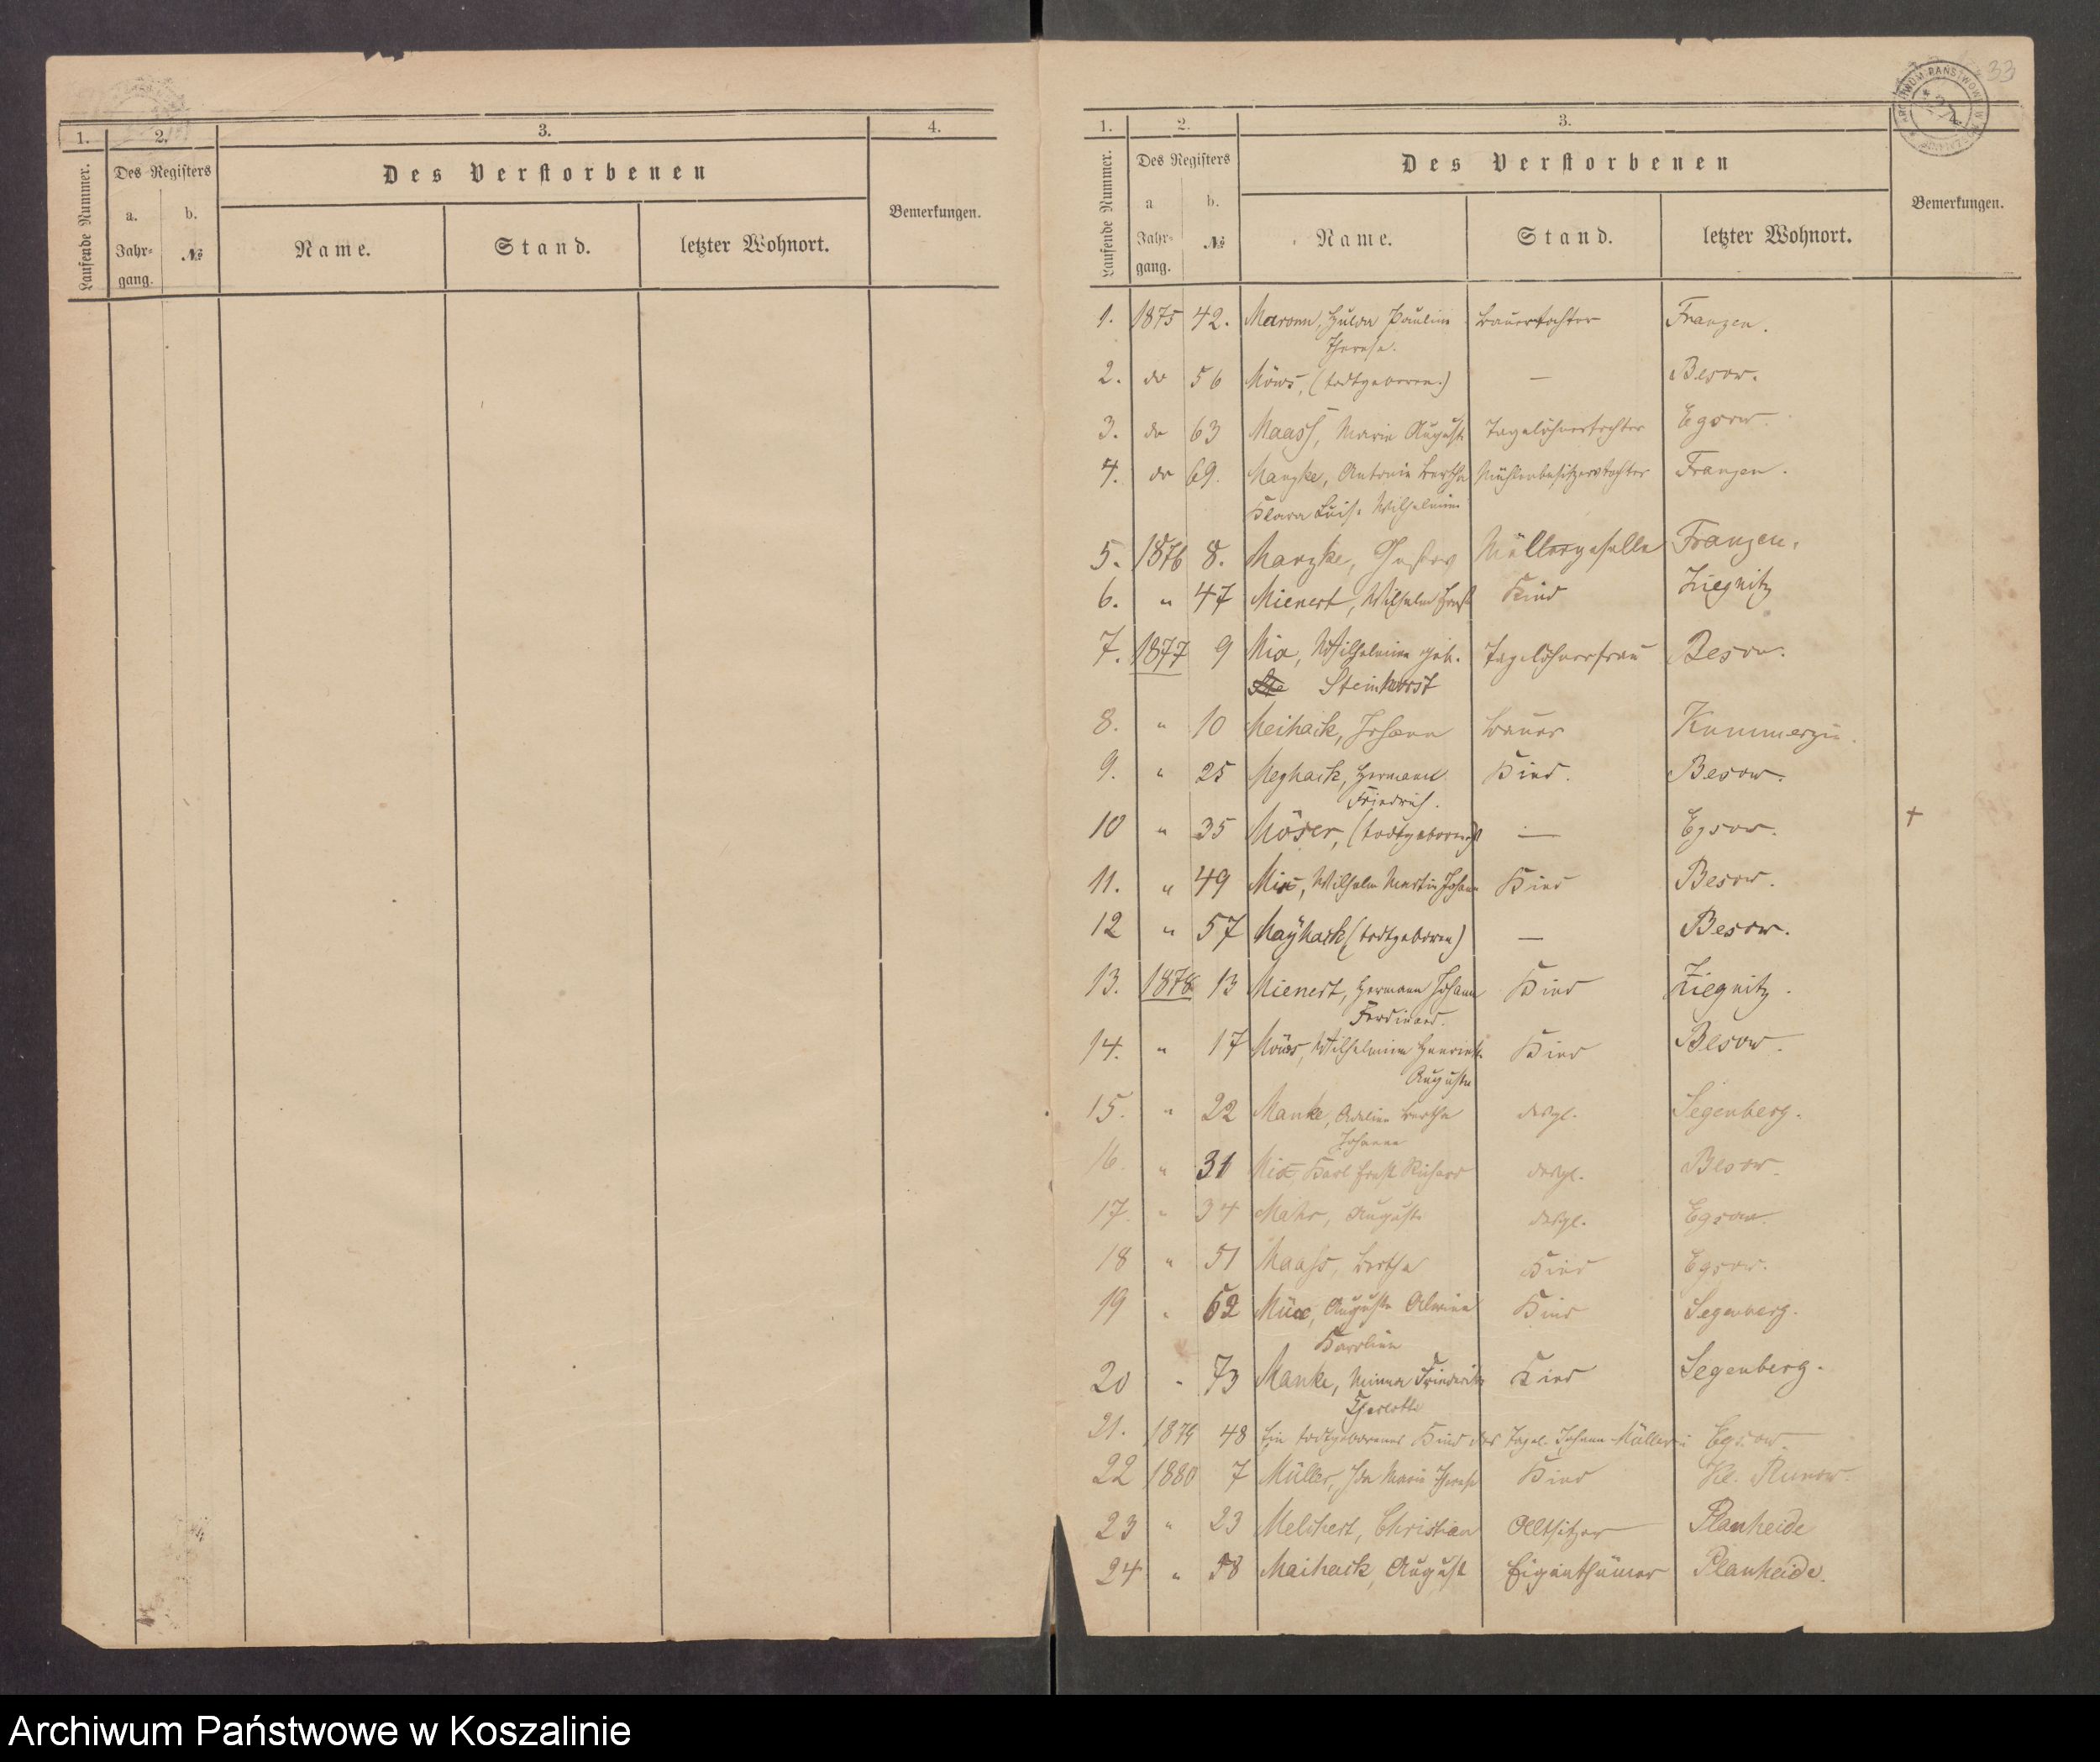 1.
2.
3.
4.
Des Registers
Des Verstorbenen
Laufende Nummer.
a.
b.
Jahr-
gang.
№
Name.
Stand.
letzter Wohnort.
Bemerkungen.
33
ARCHIWUM PAŃSTWOWE W
1.
2.
3.
Des Registers
Des Verstorbenen
Laufende Nummer.
a
b.
Jahr-
gang.
№
Name.
Stand.
letzter Wohnort.
Bemerkungen.
1. 1875 42. Maronn, Hulda Pauline Bauertochter Franzen.
Therese.
2. do 56 Möws, (todtgeboren.) — Besow.
3. do 63 Maass, Marie Auguste Tagelöhnertochter Egsow.
4. do 69. Manzke, Antonie Bertha Mühlenbesitzertochter Franzen.
Klara Luise Wilhelmine
5. 1876 8. Manzke, Gustav Müllergeselle Franzen.
6. " 47 Mienert, Wilhelm Ernst Kind Ziegnitz
7. 1877 9 Mix, Wilhelmine geb. Tagelöhnerfrau Besow.
Ste Steinhorst
8. " 10 Meihack, Johann Bauer Kummerzin.
9. " 25 Meyhack, Hermann Kind. Besow.
Friedrich.
10 " 35 Möser, (todtgeboren) — Egsow. +
11. " 49 Mix, Wilhelm Martin Johann Kind Besow.
12 " 57 Mayhack (todtgeboren) — Besow.
13. 1878 13 Mienert, Hermann Johann Kind Ziegnitz.
Ferdinand.
14. " 17 Möws, Wilhelmine Henriette Kind Besow.
Auguste
15. " 22 Manke, Adeline Bertha desgl. Segenberg.
Johanne
16. " 31 Mix, Karl Ernst Richard desgl. Besow.
17. " 34 Mahr, Auguste desgl. Egsow.
18 " 51 Maass, Bertha Kind Egsow.
19 " 52 Müx, Auguste Alwine Kind Segenberg.
Karoline
20 " 73 Manke, Minna Friederike Kind Segenberg.
Charlotte
21. 1879 48 Ein todtgeborenes Kind des Tagel. Johann Müller in Egsow.
22 1880 7 Müller, Ida Marie Therese Kind Kl. Runow.
23 " 23 Melchert, Christian Altsitzer Planheide
24 " 58 Maihack, August Eigenthümer Planheide.
Archiwum Państwowe w Koszalinie